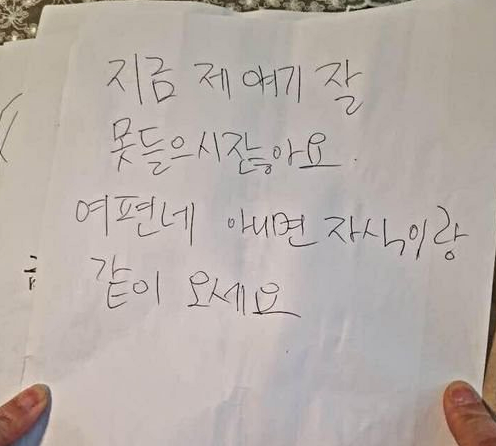 지금 제 얘기 잘
못들으시잖아요.
여편네 아니면 자식이랑
같이 오세요